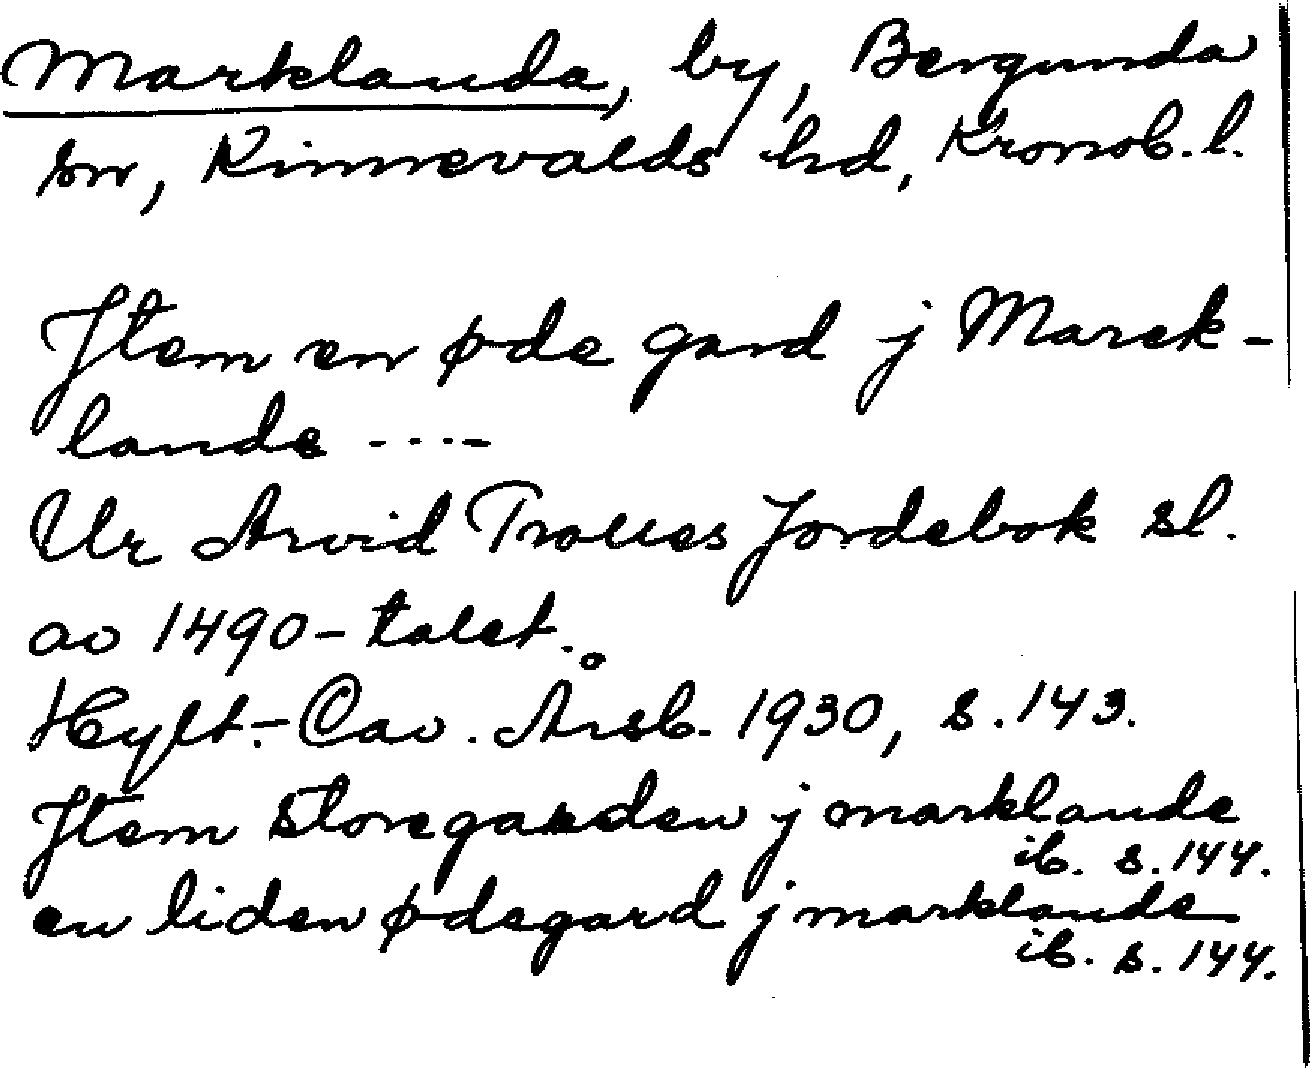 Marklanda, by, Bergunda
sn, Kinnevalds hd, Kronob. l.
Jtem en øde gard j Marck-
lande ----
Ur Arvid Trolles Jordebok sl.
av 1490-talet.
Hylt.-Cav. Årsb. 1930, s. 143.
Jtem storegarden j marklande
ib. s. 144.
en liden ødegard j marklande
ib. s. 144.